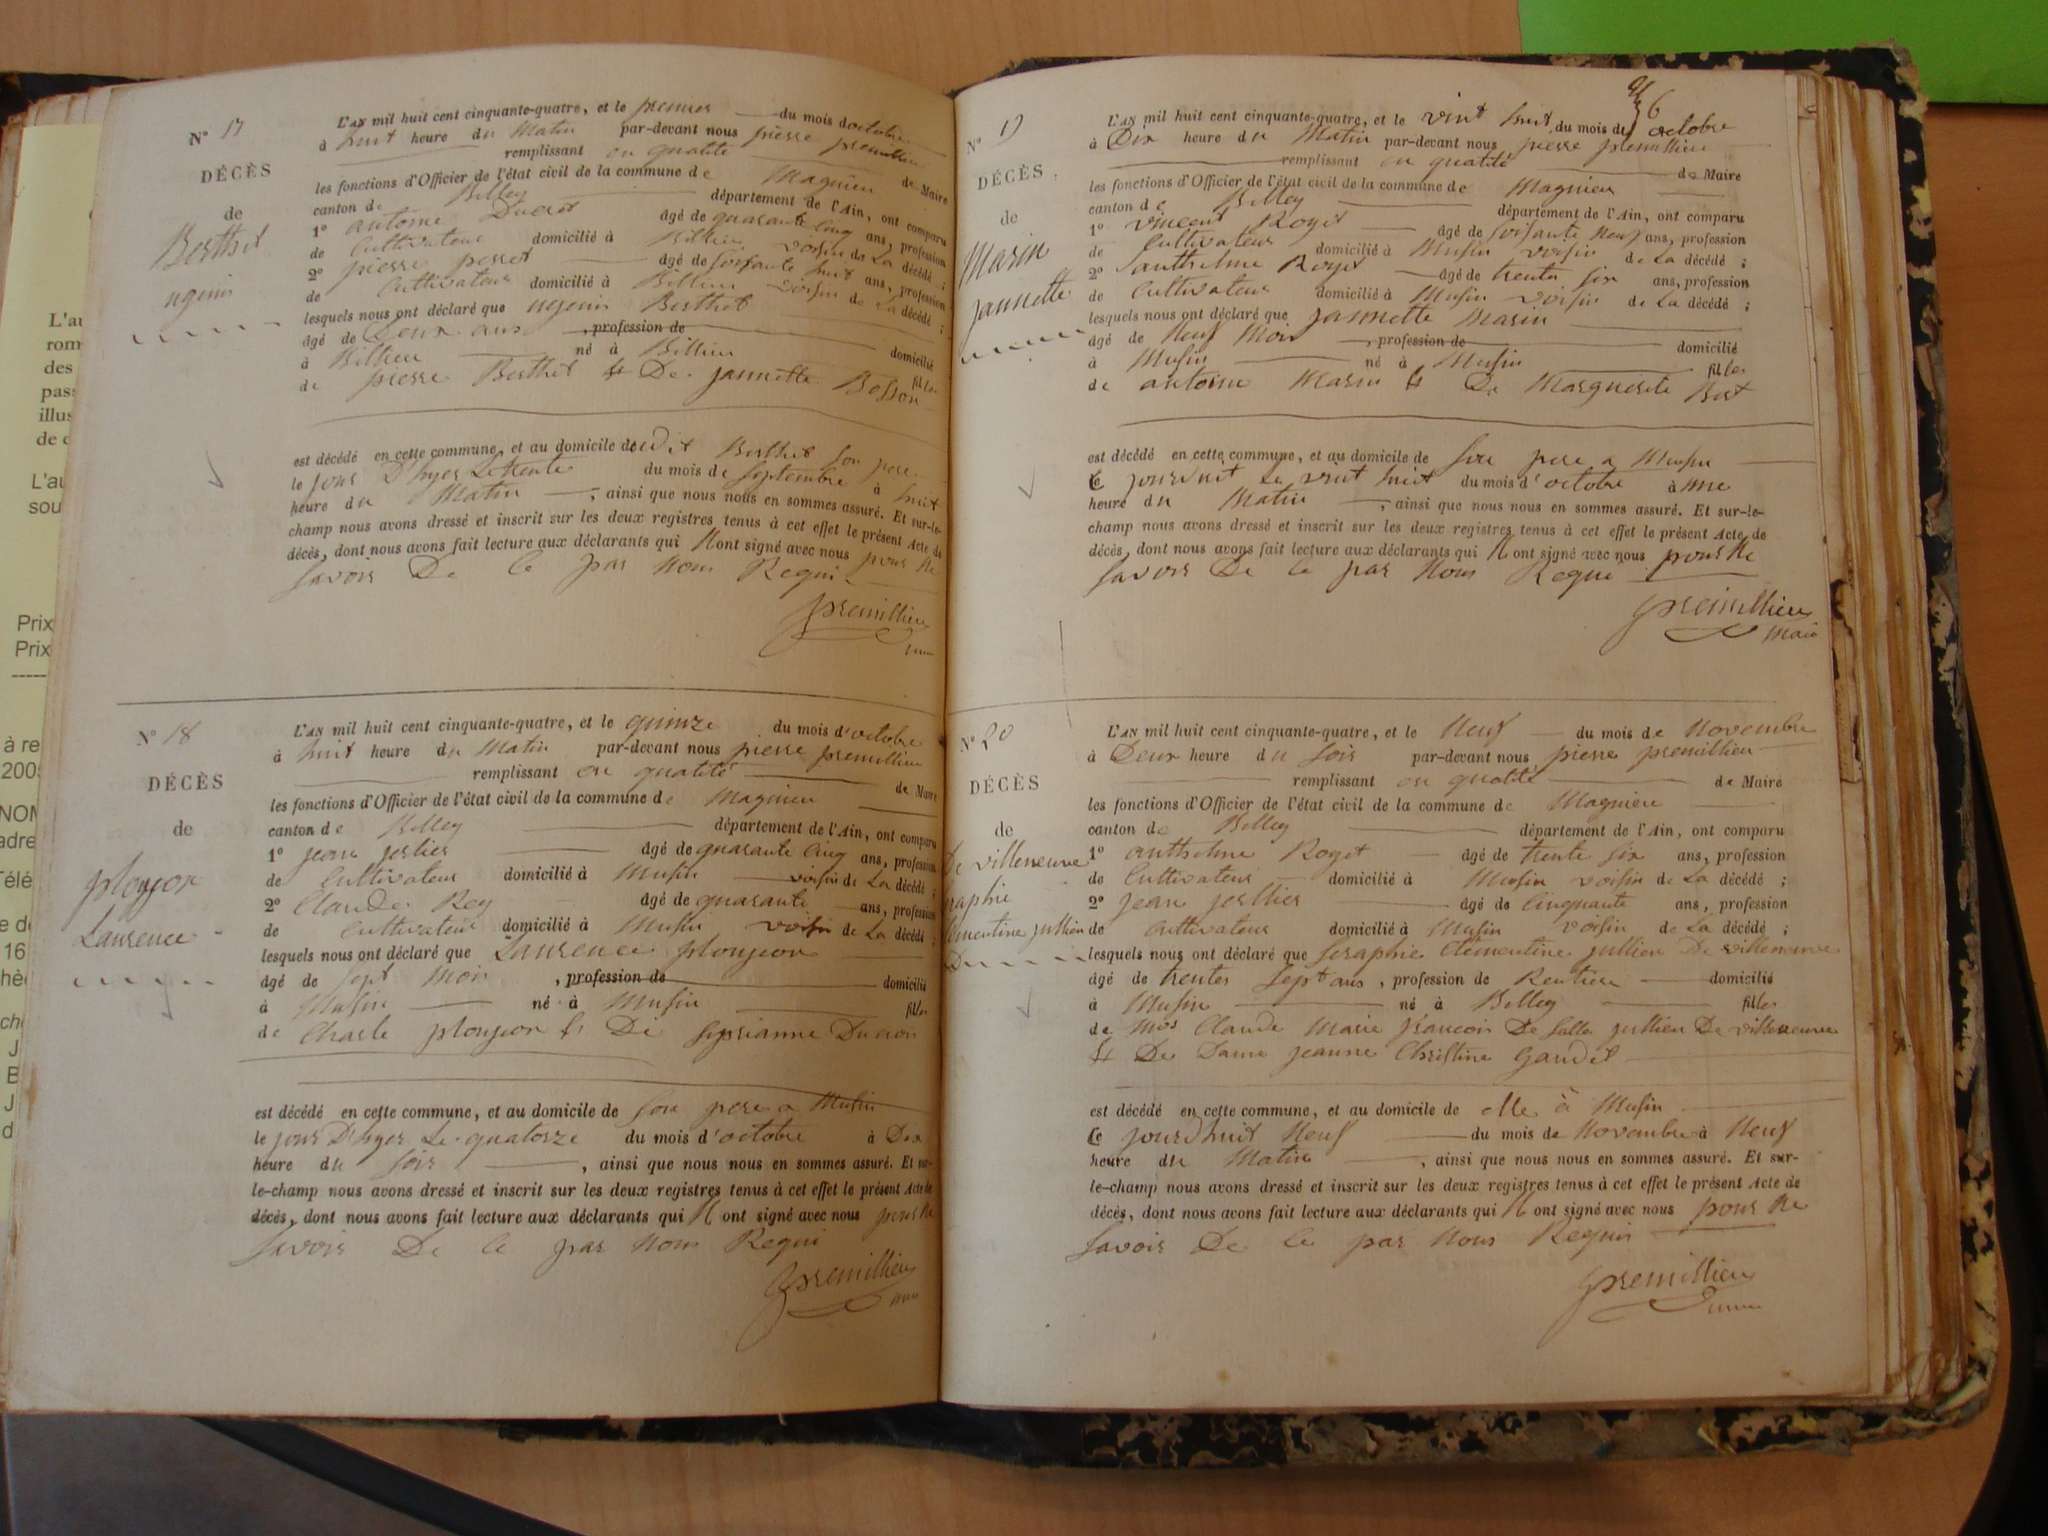 N° 17
DÉCÈS
de
Berthet
ugenis
L'AN mil huit cent cinquante-quatre, et le premier du mois d'octobre
à huit heure du Matin par-devant nous pierre premillieu
remplissant en qualité de Maire
les fonctions d'Officier de l'état civil de la commune de Magnieu
canton de Belley département de l'Ain, ont comparu
1° antoine Ducrot âgé de quarante cinq ans, profession
de Cultivateur domicilié à Billieu voisin de La décédé ;
2° pierre perret âgé de soisante huit ans, profession
de Cultivateur domicilié à Billieu voisin de La décédé ;
lesquels nous ont déclaré que ugenis Berthet
âgé de Deux ans , profession de domicilié
à Billieu né à Billieu fille
de pierre Berthet Et De jannette Bosson
est décédé en cette commune, et au domicile dudit Berthet son pere
le jour D'hyer Le trente du mois de septembre à huit
heure du Matin , ainsi que nous nous en sommes assuré. Et sur-le-
champ nous avons dressé et inscrit sur les deux registres tenus à cet effet le présent Acte de
décès, dont nous avons fait lecture aux déclarants qui N'ont signé avec nous pour Ne
savoir De Ce par Nous Requi
premillieu
N° 18
DÉCÈS
de
plonjon
Laurence
L'AN mil huit cent cinquante-quatre, et le quinze du mois d'octobre
à huit heure du Matin par-devant nous pierre premillieu
remplissant en qualité de Maire
les fonctions d'Officier de l'état civil de la commune de Magnieu
canton de Belley département de l'Ain, ont comparu
1° jean jerlier âgé de quarante cinq ans, profession
de Cultivateur domicilié à Musin voisin de La décédé ;
2° Claude Rey âgé de quarante ans, profession
de Cultivateur domicilié à Musin voisin de La décédé ;
lesquels nous ont déclaré que Laurence plonjeon
âgé de sept Mois , profession de domicilié
à Musin né à Musin fille
de Charle plonjeon Et De syprianne Ducros
est décédé en cette commune, et au domicile de son pere a Musin
le jour D'hyer Le quatorze du mois d'octobre à Dix
heure du soir , ainsi que nous nous en sommes assuré. Et sur-
le-champ nous avons dressé et inscrit sur les deux registres tenus à cet effet le présent Acte de
décès, dont nous avons fait lecture aux déclarants qui N'ont signé avec nous pour Ne
savoir De Ce par Nous Requi
premillieu
6
N° 19
DÉCÈS
de
Marin
jannette
L'AN mil huit cent cinquante-quatre, et le vint huit du mois de octobre
à Dix heure du Matin par-devant nous pierre premillieu
remplissant en qualité de Maire
les fonctions d'Officier de l'état civil de la commune de Magnieu
canton de Belley département de l'Ain, ont comparu
1° vincent Royet âgé de soisante Neuf ans, profession
de Cultivateur domicilié à Musin voisin de La décédé ;
2° anthelme Royet âgé de trente six ans, profession
de Cultivateur domicilié à Musin voisin de La décédé ;
lesquels nous ont déclaré que jannette Marin
âgé de Neuf Mois , profession de domicilié
à Musin né à Musin fille
de antoine Marin Et De Marguerite Bert
est décédé en cette commune, et au domicile de son pere a Musin
Ce jourduit Le vint huit du mois d'octobre à une
heure du Matin , ainsi que nous nous en sommes assuré. Et sur-le-
champ nous avons dressé et inscrit sur les deux registres tenus à cet effet le présent Acte de
décès, dont nous avons fait lecture aux déclarants qui N'ont signé avec nous pour Ne
savoir De Ce par Nous Requi
premillieu
Maire
N° 20
DÉCÈS
de
De villeneuve
raphie
lémentine jullien
De
L'AN mil huit cent cinquante-quatre, et le Neuf du mois de Novembre
à Deux heure du soir par-devant nous pierre premillieu
remplissant en qualité de Maire
les fonctions d'Officier de l'état civil de la commune de Magnieu
canton de Belley département de l'Ain, ont comparu
1° anthelme Royet âgé de trente six ans, profession
de Cultivateur domicilié à Musin voisin de La décédé ;
2° jean jerllier âgé de cinquante ans, profession
de Cultivateur domicilié à Musin voisin de La décédé ;
lesquels nous ont déclaré que seraphie Clémentine jullien De villeneuve
âgé de trentes sept ans , profession de Rentiere domicilié
à Musin né à Belley fille
de Mos Claude Marie françois De salle jullien De villeneuve
Et De Dame jeanne Christine Gaudet
est décédé en cette commune, et au domicile de elle à Musin
Ce jourdhuit Neuf du mois de Novembre à Neuf
heure du Matin , ainsi que nous nous en sommes assuré. Et sur-
le-champ nous avons dressé et inscrit sur les deux registres tenus à cet effet le présent Acte de
décès, dont nous avons fait lecture aux déclarants qui N'ont signé avec nous pour Ne
savoir De Ce par Nous Requis
premillieu